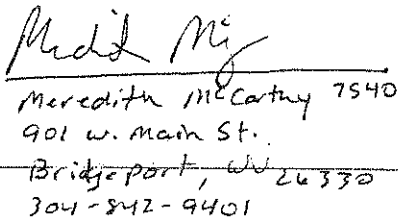 Meredith McCarthy 7540
901 W. Main St.
Bridgeport, WV 26330
304-842-9401